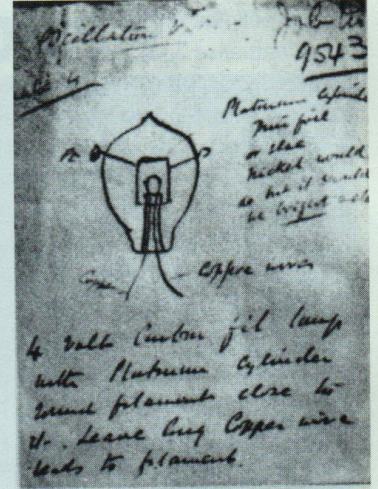 Oscillation
9543
Platinum
thin foil
or else
Nickel would
do but it would
be bright
Copper wires
4 volts Carbon fil lamp
with Platinum Cylinder
round filament close to
it. Leave long Copper wire
leads to filament.